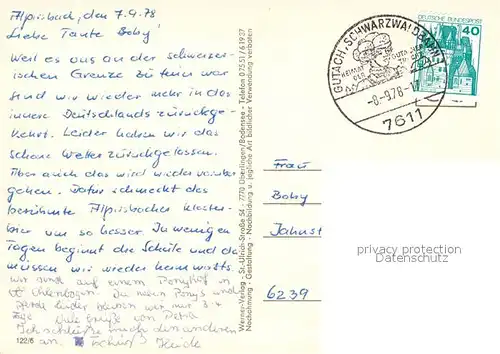 Alpirsbach, den 7.9.78
Liebe Tante Boby!
Weil es an der schweizer-
ischen Grenze zu teuer war
sind wir wieder mehr in das
innere Deutschlands zurückge-
kehrt. Leider haben wir das
schöne Wetter zurückgelassen.
Aber auch das wird wieder vorüber
gehen. Dafür schmeckt das
berühmte Alpirsbacher Kloster-
bier um so besser. In wenigen
Tagen beginnt die Schule und da
müssen wir wieder heimwärts.
Wir sind auf einem Ponyhof in
Pferde leider bleiben wir nur 3-4
Tage Viele Grüße von Petra
Ich schließe mich den anderen
an. Heide
122/6
Werner-Verlag · St.-Ulrich-Straße 54 · 7770 Überlingen/Bodensee · Telefon 07551/61937
Nachahmung · Gestaltung · Nachbildung u. jegliche Art bildlicher Verwendung verboten
GUTACH, SCHWARZWALDBAHN
HEIMAT
DES
-8.-9.78-
7611
DEUTSCHE BUNDESPOST
40
Frau
Boby
Jahust
6239
privacy protection
Datenschutz